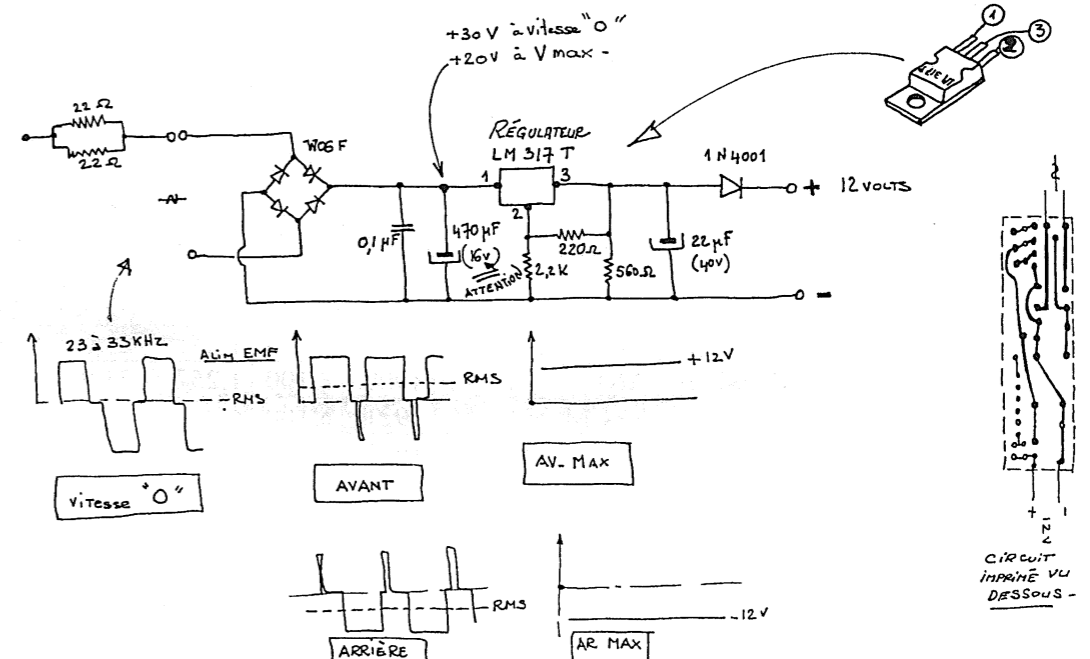 +30V à vitesse "O"
+20V à V max -
1
3
2
22 Ω
22Ω
W06F
RÉGULATEUR
LM 317 T
1
3
2
1N4001
+ 12 VOLTS
0,1 µF
470µF
(16v)
ATTENTION
220Ω
2,2K
560Ω
22 µF
(40v)
-
23 à 33KHz
RMS
Vitesse "O"
Alim EMF
RMS
AVANT
+12V
AV_ MAX
RMS
ARRIÈRE
-12V
AR MAX
+
12V
-
CIRCUIT
IMPRIMÉ VU
DESSOUS -